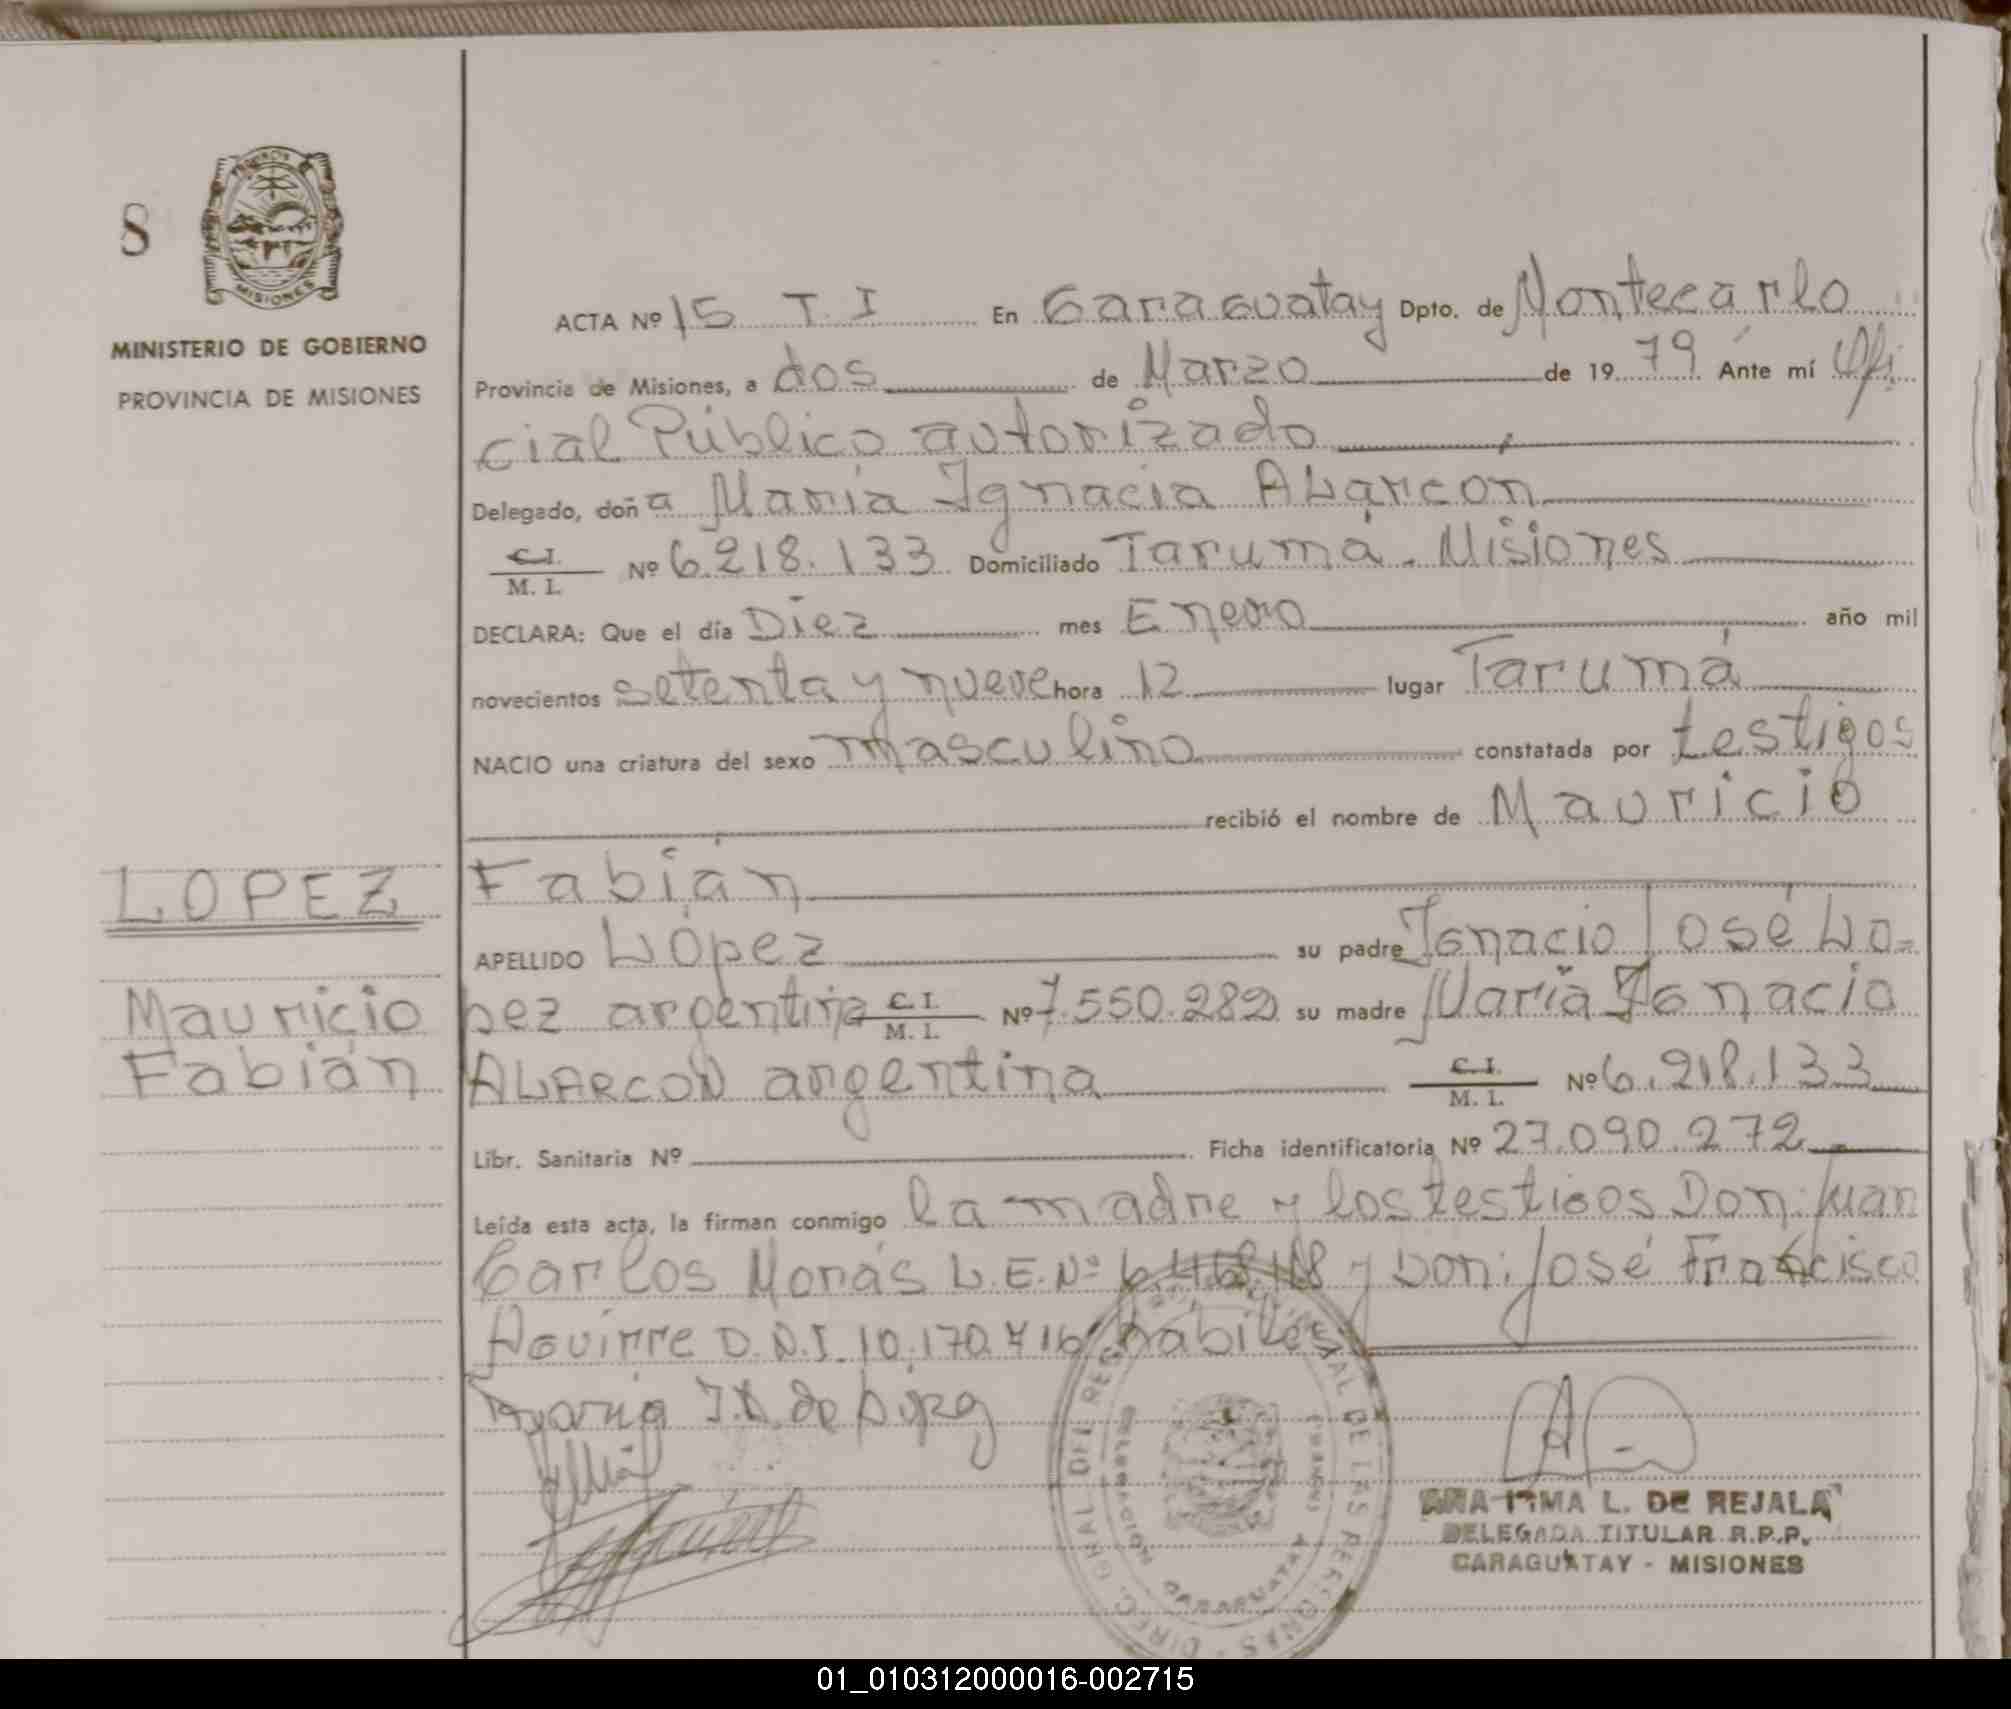 8
PROVINCIA
MISIONES
MINISTERIO DE GOBIERNO
PROVINCIA DE MISIONES
ACTA Nº 15 T. I En Caraguatay Dpto. de Montecarlo
Provincia de Misiones, a dos de Marzo de 1979 Ante mí Ofi
cial Público autorizado
Delegado, doña María Ignacia ALarcón
C.I. / M. I. Nº 6.218.133 Domiciliado Tarumá. Misiones
DECLARA: Que el día Diez mes Enero año mil
novecientos setenta y nueve hora 12 lugar Tarumá
NACIO una criatura del sexo masculino constatada por testigos
recibió el nombre de Mauricio
LOPEZ
Fabián
APELLIDO López su padre Ignacio José Lo=
Mauricio
pez argentina C.I. / M. I. Nº 7.550.282 su madre María Ignacia
Fabián
ALARCON argentina C.I. / M. I. Nº 6.218.133
Libr. Sanitaria Nº Ficha identificatoria Nº 27.090.272
Leída esta acta, la firman conmigo la madre y los testigos Don: Juan
Carlos Morás L.E.Nº y Don: José Francisco
Aguirre D.N.I. 10.170.716 habiles
María I.A de
ANA IRMA L. DE REJALA
DELEGADA TITULAR R.P.P.
CARAGUATAY - MISIONES
01_010312000016-002715